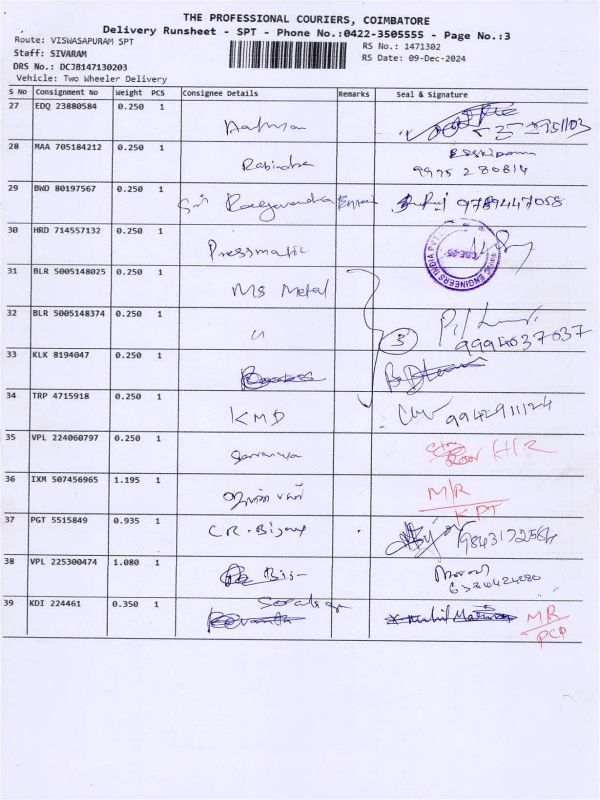 THE PROFESSIONAL COURIERS, COIMBATORE
Delivery Runsheet - SPT - Phone No.:0422-3505555 - Page No.:3
Route: VISWASAPURAM SPT
RS No.: 1471302
Staff: SIVARAM
RS Date: 09-Dec-2024
DRS No.: DCJB147130203
Vehicle: Two Wheeler Delivery
S No Consignment No Weight PCS Consignee Details Remarks Seal & Signature
27 EDQ 23880584 0.250 1
28 MAA 705184212 0.250 1 Rabindra
9975 280814
29 BWD 80197567 0.250 1 Sri Raagavendra 9789447058
30 HRD 714557132 0.250 1 Pressmatic
31 BLR 5005148025 0.250 1 Ms Metal
32 BLR 5005148374 0.250 1 u 3
9994037037
33 KLK 8194047 0.250 1
34 TRP 4715918 0.250 1 KMD 9942911124
35 VPL 224060797 0.250 1 Saranya H/R
36 IXM 507456965 1.195 1 M/R
KPT
37 PGT 5515849 0.935 1 C.R. Bijoy
38 VPL 225300474 1.080 1
39 KDI 224461 0.350 1 M/R
PCP